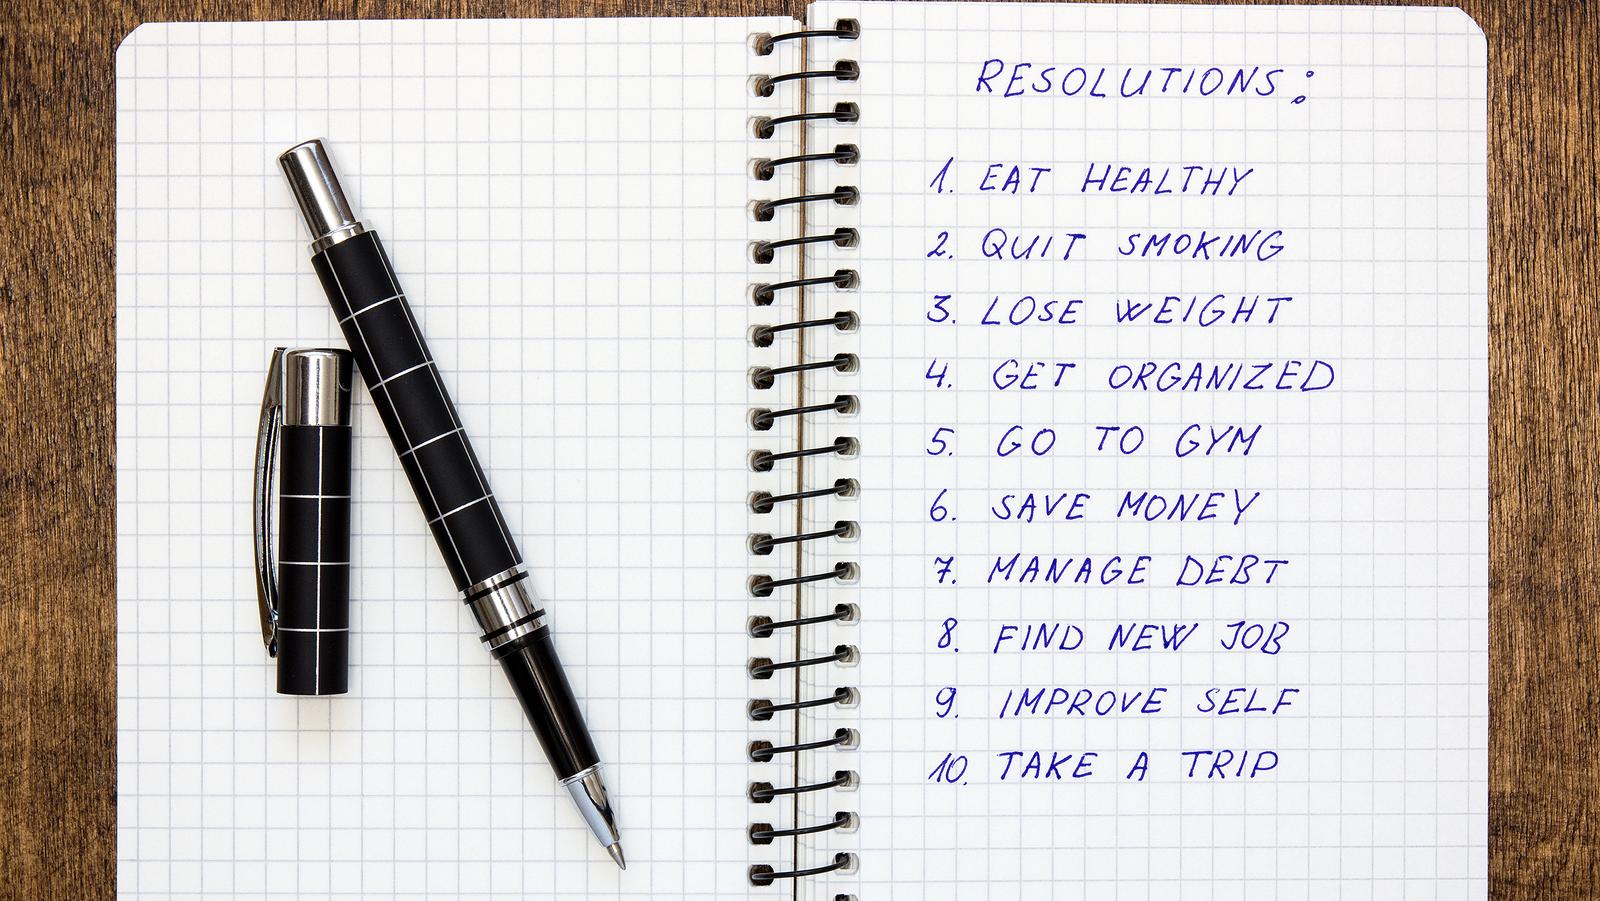 RESOLUTIONS:
1. EAT HEALTHY
2. QUIT SMOKING
3. LOSE WEIGHT
4. GET ORGANIZED
5. GO TO GYM
6. SAVE MONEY
7. MANAGE DEBT
8. FIND NEW JOB
9. IMPROVE SELF
10. TAKE A TRIP